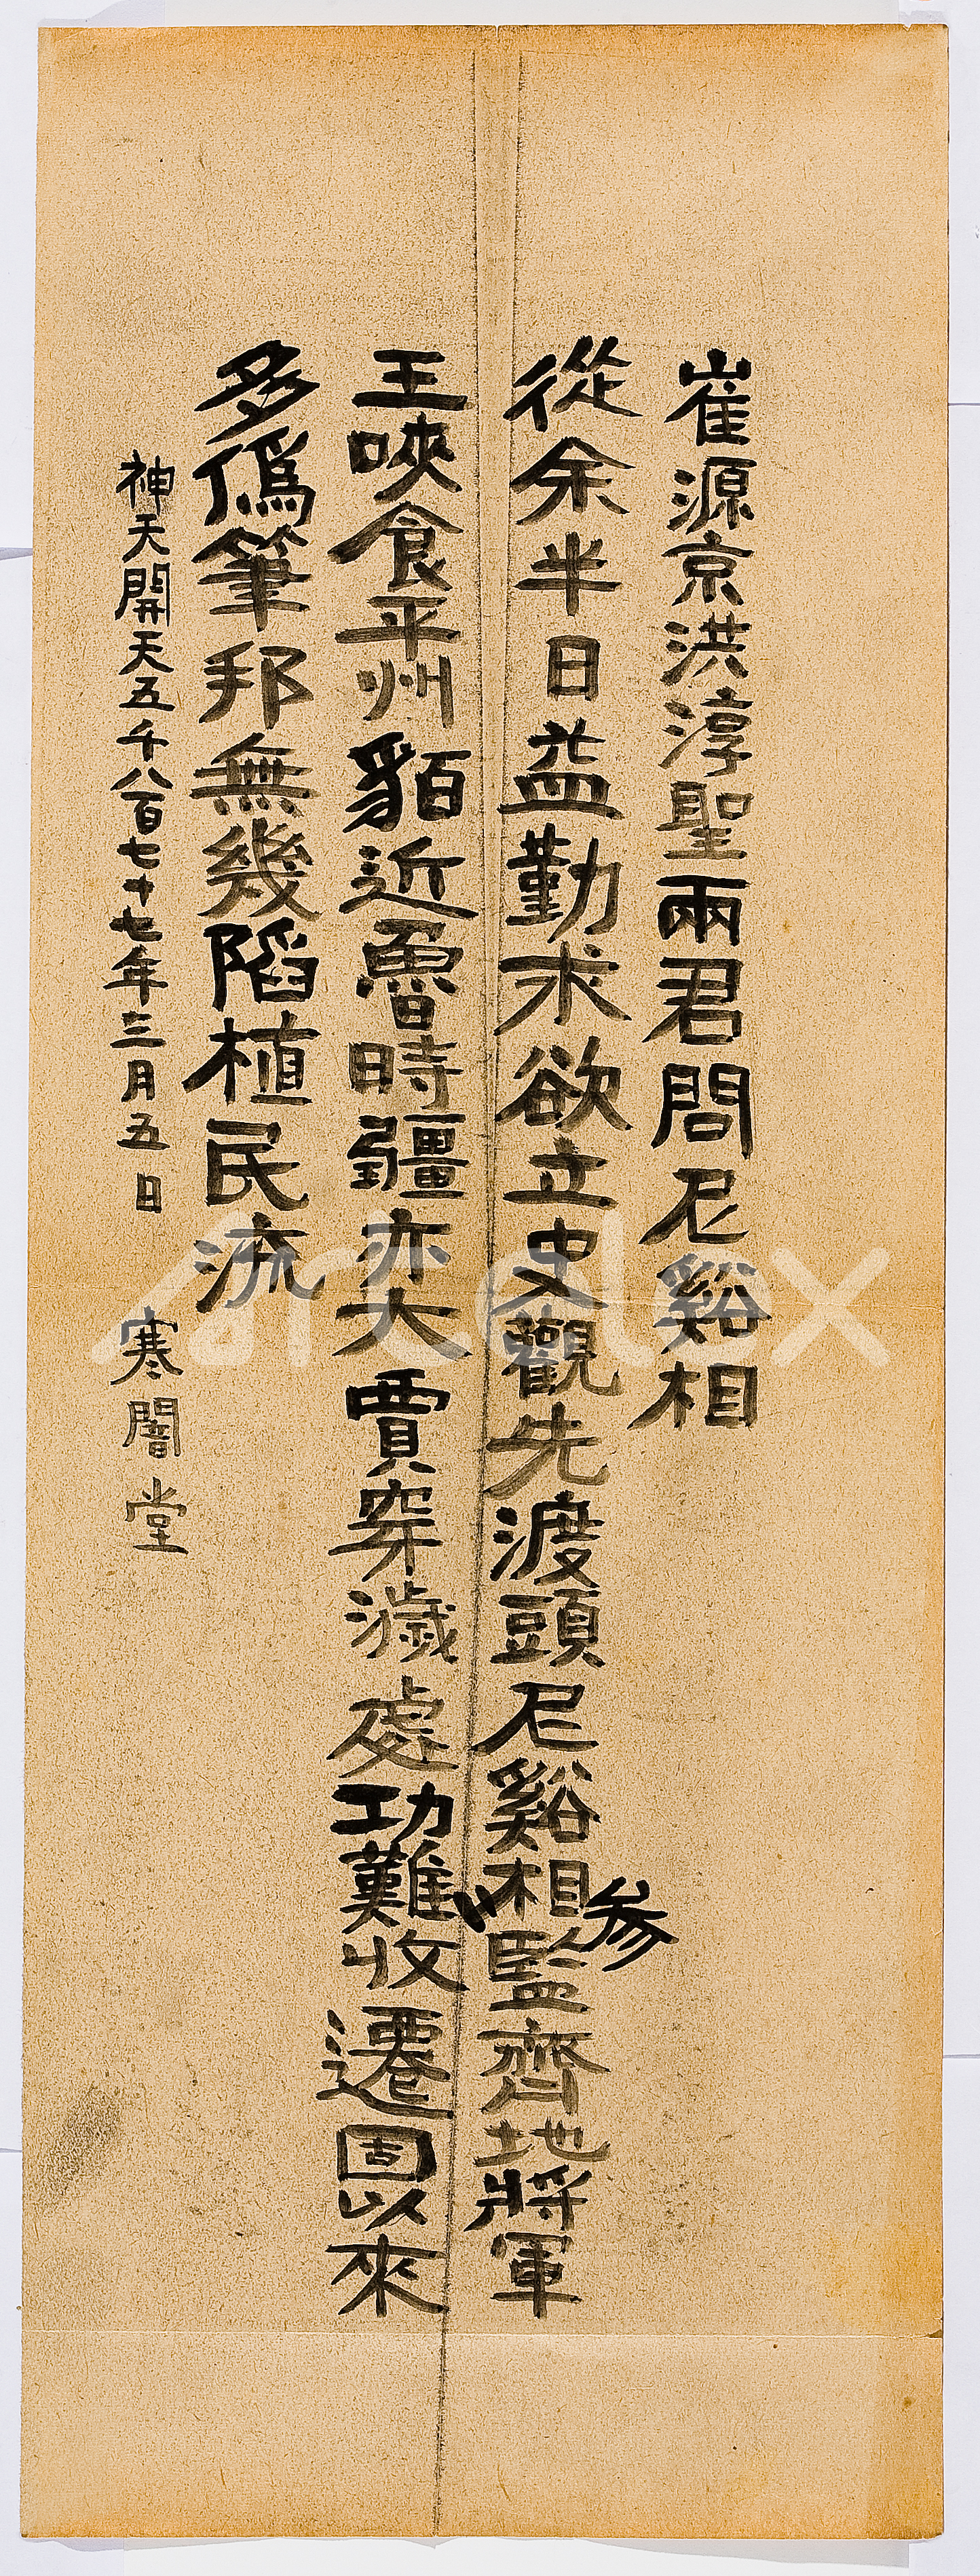 崔源京洪淳聖兩君問尼谿相
從余半日益勤求欲立史觀先渡頭尼谿相參監齊地將軍
王唊食平州貊近魯時疆亦大賈穿濊處功難收遷固以來
多僞筆邦無幾陷植民流
神天開天五千八百七十七年三月五日 寒闇堂
artclox